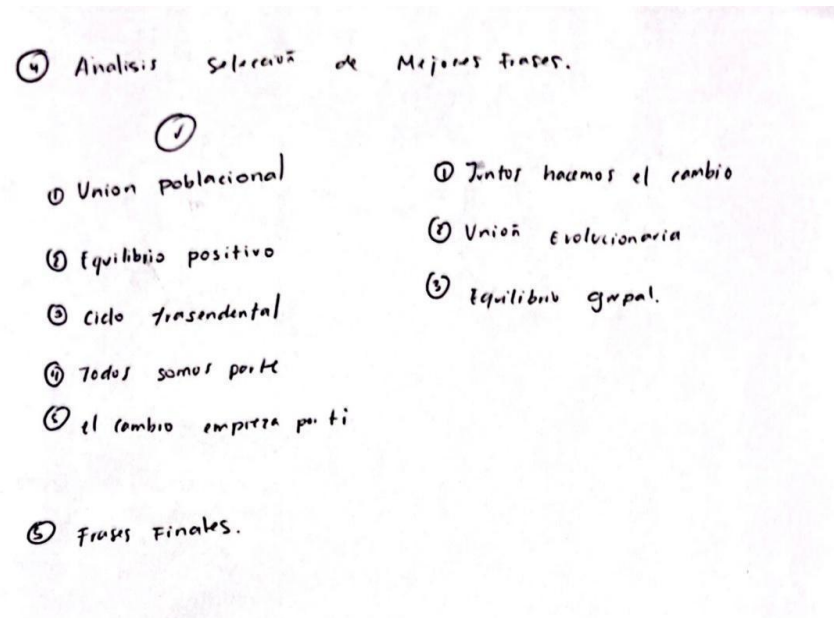 ④ Analisis Selección de Mejores Frases.
①
① Union poblacional
② Equilibrio positivo
③ Ciclo trasendental
④ Todos somos parte
⑤ el cambio empieza por ti
① Juntos hacemos el cambio
② Unión Evolucionaria
③ Equilibrio grupal.
⑤ Frases Finales.